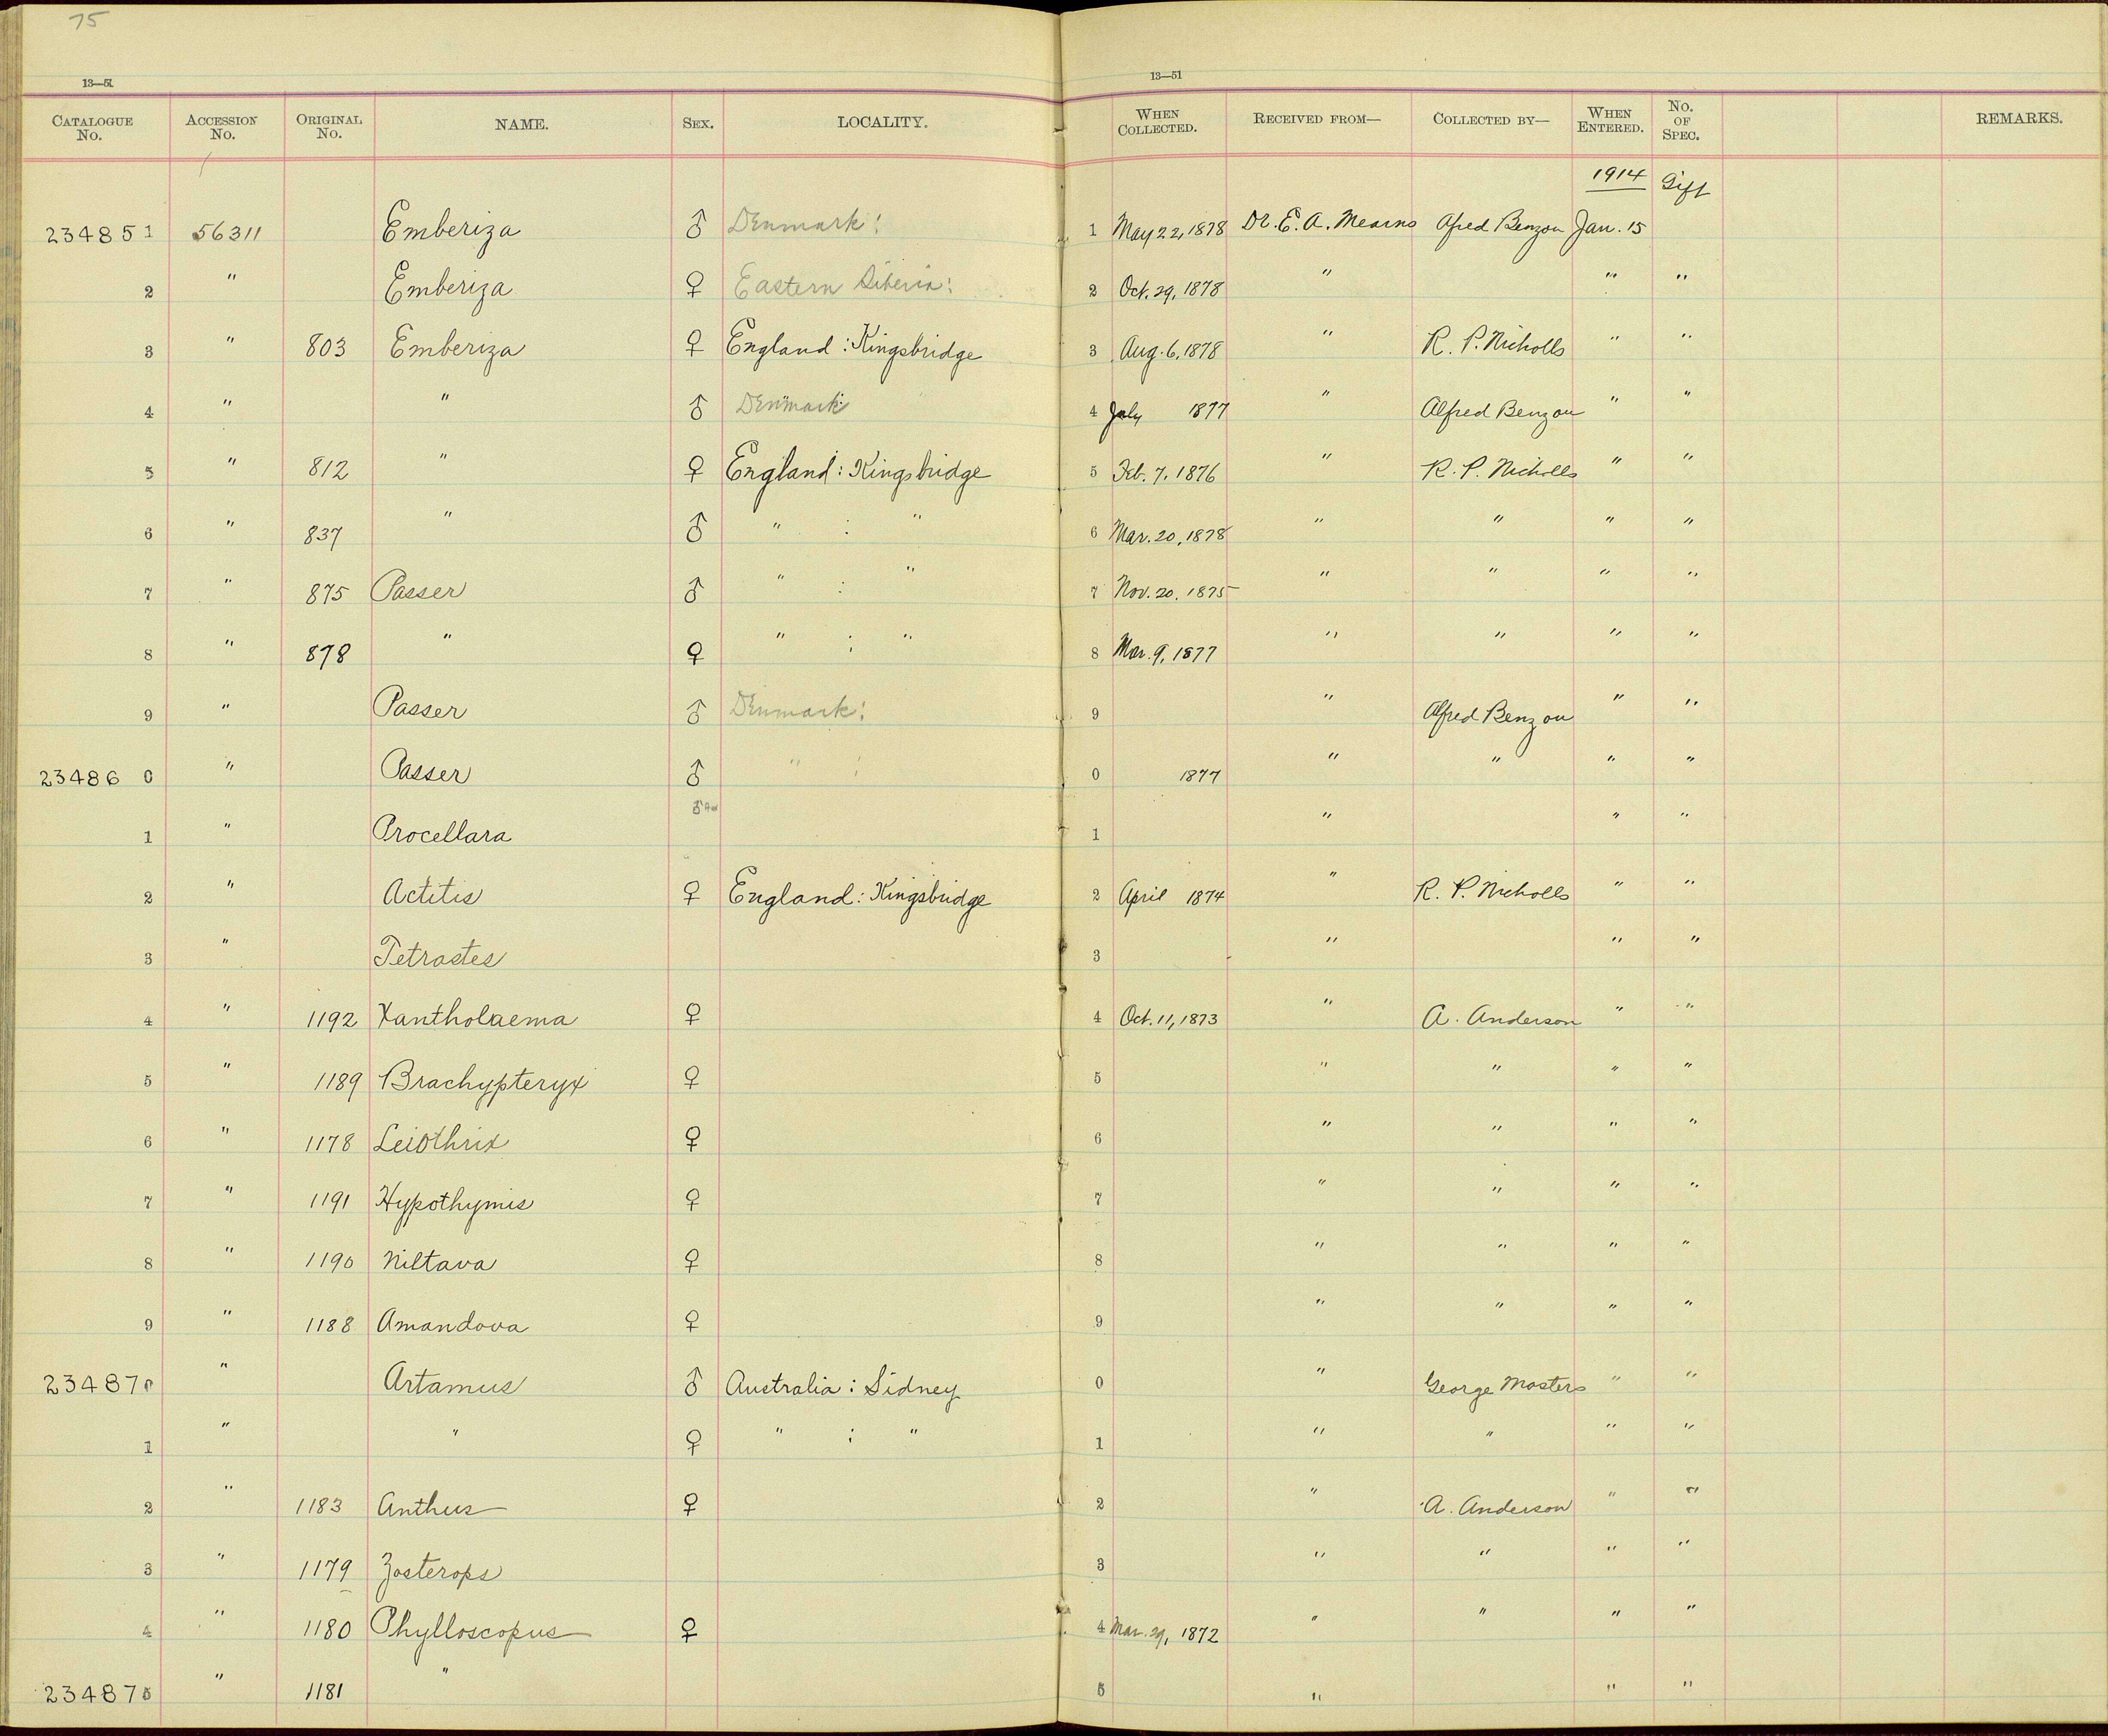 75
13—51
13—51
CATALOGUE No. ACCESSION No. ORIGINAL No. NAME. SEX. LOCALITY. WHEN COLLECTED. RECEIVED FROM— COLLECTED BY— WHEN ENTERED. No. OF SPEC. REMARKS.
1914 Gift
234851 56311 Emberiza ♂ Denmark: 1 May 22, 1878 Dr. E. A. Mearns Afred Benzon Jan. 15
2 " Emberiza ♀ Eastern Siberia: 2 Oct. 29, 1878 " " "
3 " 803 Emberiza ♀ England: Kingsbridge 3 Aug. 6, 1878 " R. P. Nicholls " "
4 " " ♂ Denmark: 4 July 1877 " Alfred Benzon " "
5 " 812 " ♀ England: Kingsbridge 5 Feb. 7, 1876 " R. P. Nicholls " "
6 " 837 " ♂ " : " 6 Mar. 20, 1878 " " " "
7 " 875 Passer ♂ " : " 7 Nov. 20, 1875 " " " "
8 " 878 " ♀ " : " 8 Mar. 9, 1877 " " " "
9 " Passer ♂ Denmark: 9 " Alfred Benzon " "
234860 " Passer ♂ " : 0 1877 " " " "
1 " Procellara 1 " " "
2 " Actitis ♀ England: Kingsbridge 2 April 1874 " R. P. Nicholls " "
3 " Tetrastes 3 " " "
4 " 1192 Xantholaema ♀ 4 Oct. 11, 1873 " A. Anderson " "
5 " 1189 Brachypteryx ♀ 5 " " " "
6 " 1178 Leiothrix ♀ 6 " " " "
7 " 1191 Hypothymis ♀ 7 " " " "
8 " 1190 Niltava ♀ 8 " " " "
9 " 1188 Amandova ♀ 9 " " " "
234870 " Artamus ♂ Australia: Sidney 0 " George Masters " "
1 " " ♀ " : " 1 " " " "
2 " 1183 Anthus ♀ 2 " A. Anderson " "
3 " 1179 Zosterops 3 " " " "
4 " 1180 Phylloscopus ♀ 4 Mar. 29, 1872 " " " "
234875 " 1181 " 5 " " "